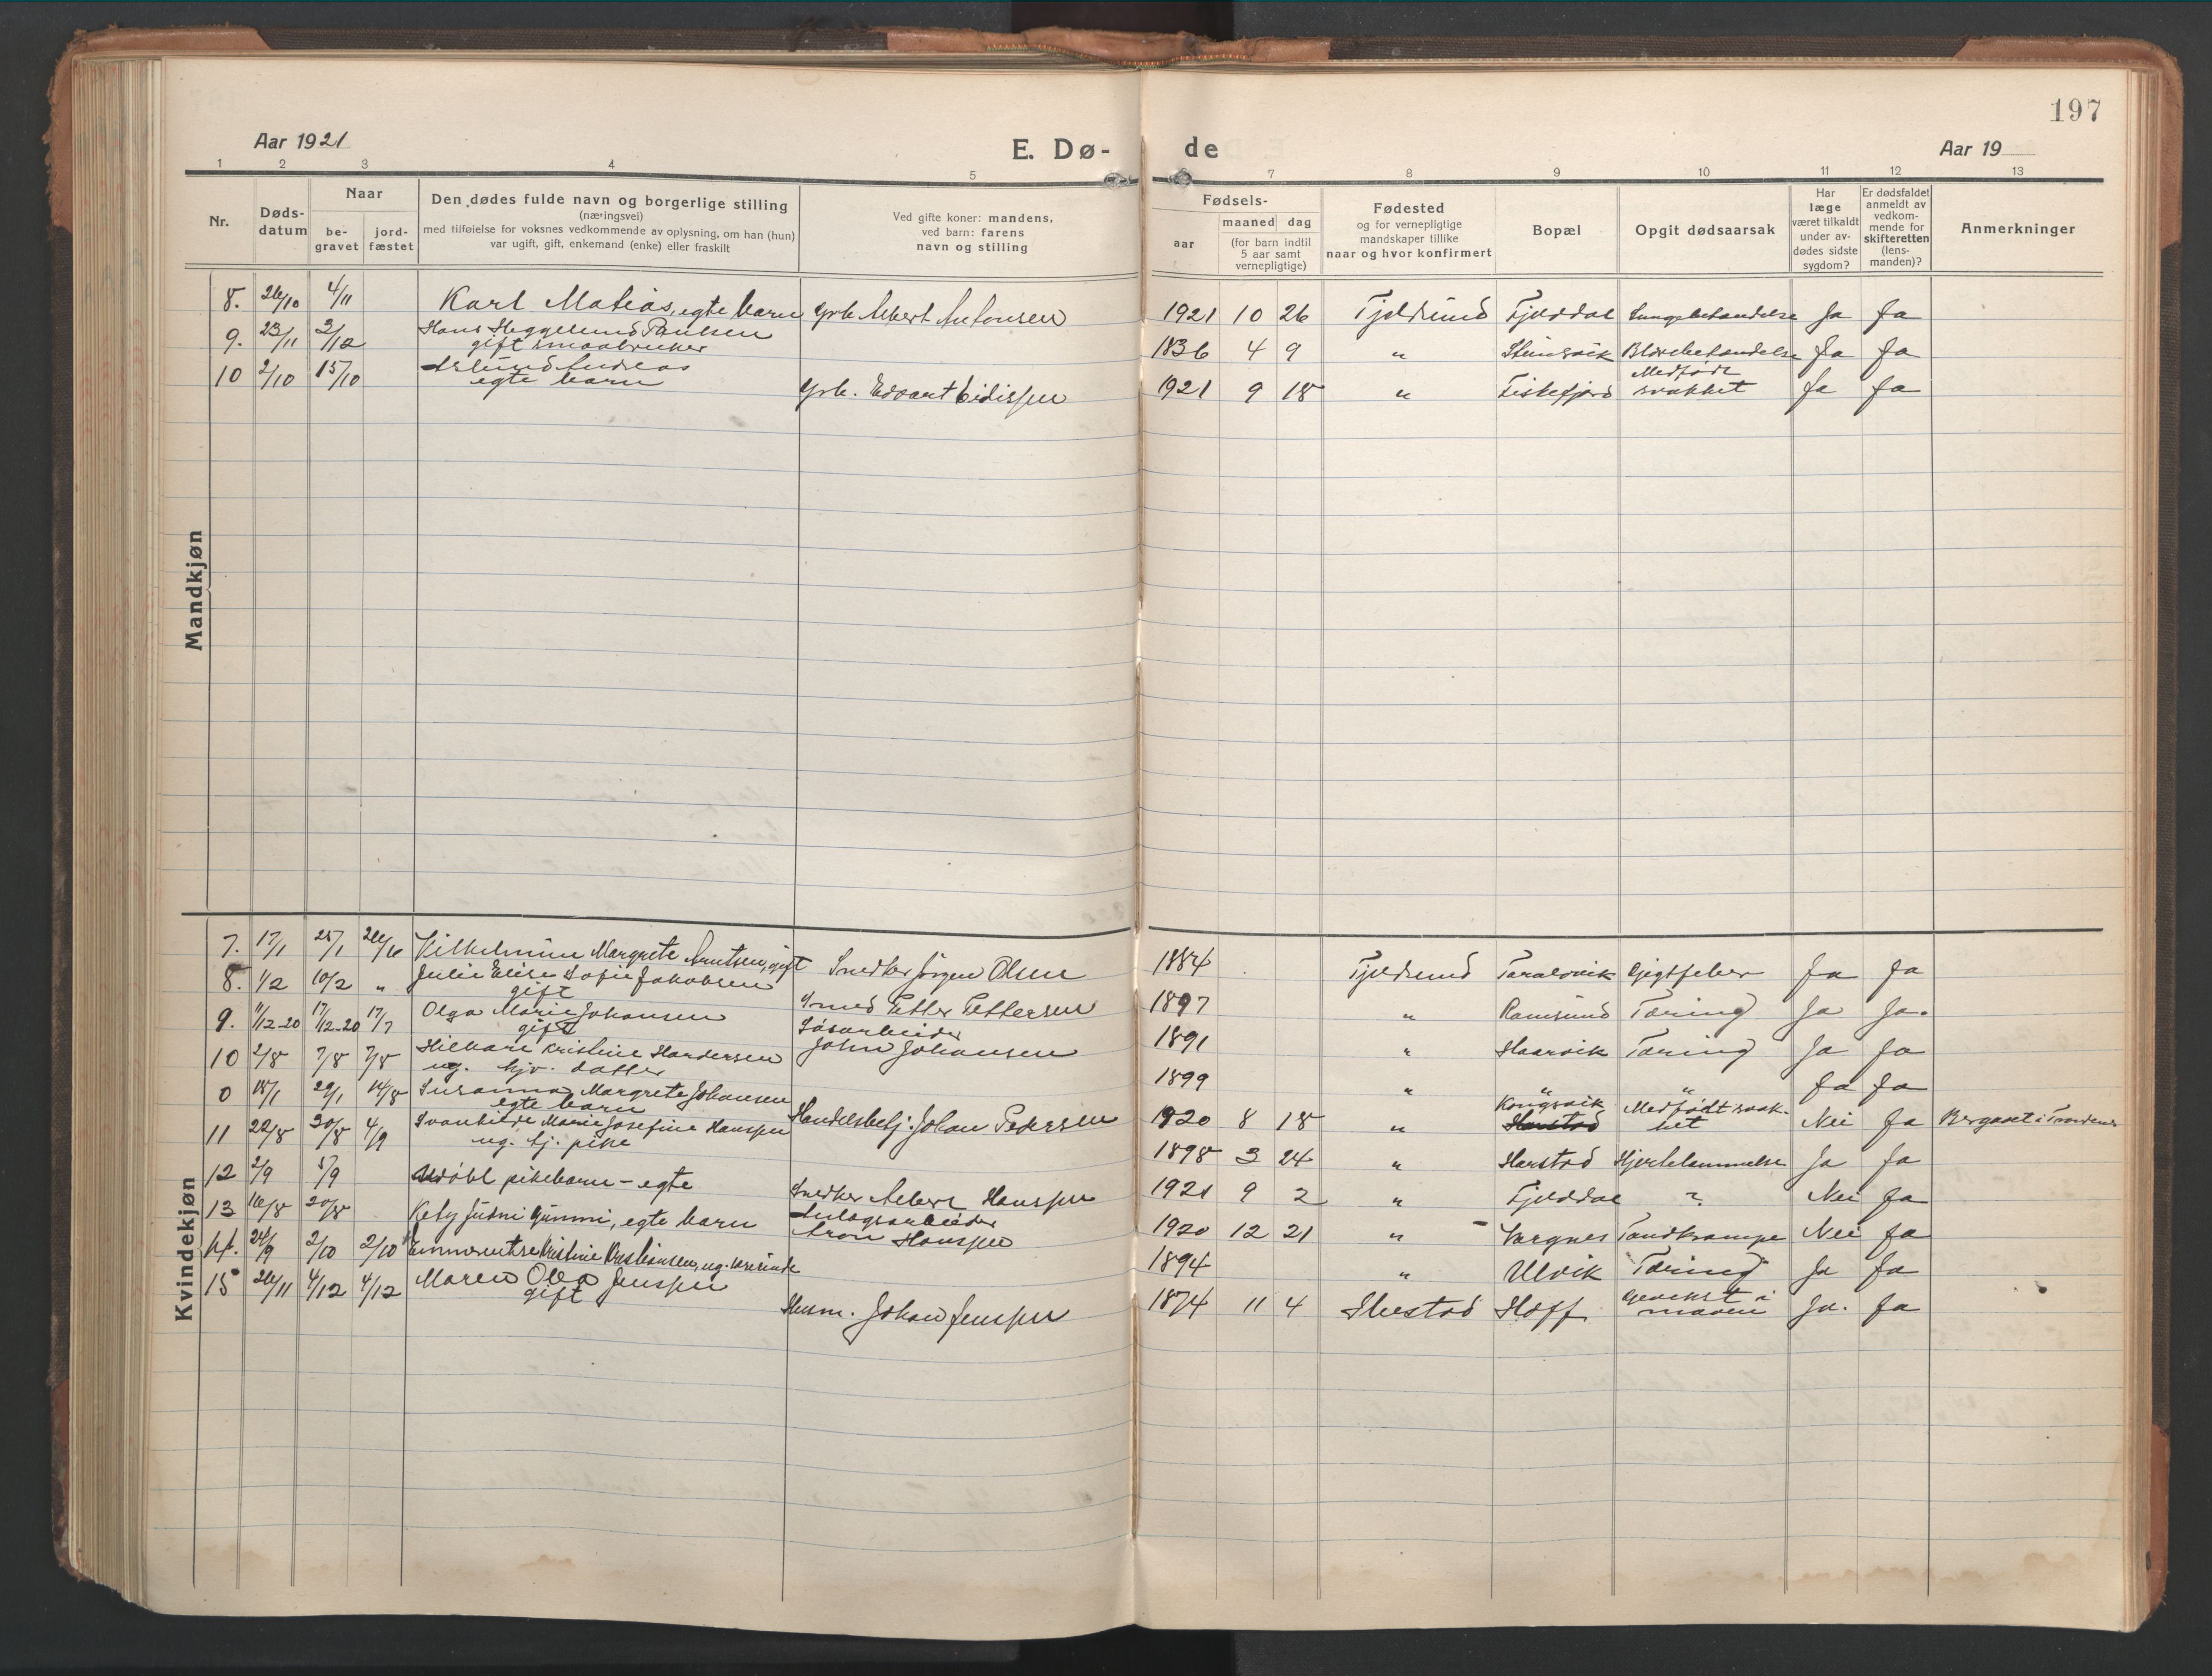 197
Aar 1921
E. Dø-
de
Aar 19
1 2 3 4 5 7 8 9 10 11 12 13
Nr.
Døds-
datum
Naar
be-
gravet
jord-
fæstet
Den dødes fulde navn og borgerlige stilling
(næringsvei)
med tilføielse for voksnes vedkommende av oplysning, om han (hun)
var ugift, gift, enkemand (enke) eller fraskilt
Ved gifte koner: mandens,
ved barn: farens
navn og stilling
Fødsels-
aar
maaned dag
(for barn indtil
5 aar samt
vernepligtige)
Fødested
og for vernepligtige
mandskaper tillike
naar og hvor konfirmert
Bopæl
Opgit dødsaarsak
Har
læge
været tilkaldt
under av-
dødes sidste
sygdom?
Er dødsfaldet
anmeldt av
vedkom-
mende for
skifteretten
(lens-
manden)?
Anmerkninger
Mandkjøn
8. 26/10 4/11 Karl Matias, egte barn Grb. Albert Antonsen 1921 10 26 Tjeldsund Fjelddal Lungebetændelse Ja Ja
9. 23/11 3/12 Hans Heggelund Paulsen
gift smaabruker 1836 4 9 " Steinsvik Blærebetændelse Ja Ja
10 2/10 15/10 Andreas
egte barn Grb. Edvart Eidissen 1921 9 18 " Fiskefjord Medfødt
svakhet Ja Ja
Kvindekjøn
7. 17/1 25/1 26/6 Vilhelmine Margrete Knutsen, gift Snedker Jørgen Olsen 1884 Tjeldsund Taraldvik Gigtfeber Ja Ja
8. 1/2 10/2 " Julie Elise Sofie Jakobsen
gift Smed Petter Pettersen 1897 " Ramsund Tæring Ja Ja.
9. 11/12-20 17/12-20 17/7 Olga Marie Johansen
gift Løsarbeider
John Johansen 1891 " Haarvik Tæring Ja Ja
10 2/8 7/8 7/8 Kristine Hardersen
ug. hjv. datter 1899 " " " Ja Ja
0 18/1 29/1 14/8 Susanna Margrete Johansen
egte barn Handelsbetj. Johan Pedersen 1920 8 18 " Kongsvik
Harstad Medfødt svak-
het Nei Ja Begravet i Trondenes
11 22/8 30/8 4/9 Svanhilde Marie Josefine Hanssen
ug. tj. pike 1898 3 24 " Harstad Hjertelammelse Ja Ja
12 2/9 5/9 Udøbt pikebarn - egte Snedker Albert Hanssen 1921 9 2 " Fjelddal ? Nei Ja
13 16/8 20/8 Kety Judni Gunni, egte barn Anlægsarbeider
Aron Hanssen 1920 12 21 " Vargnes Tandkrampe Nei Ja
14. 24/9 2/10 2/10 Emmerentse Kristine Kristiansen, ug. væverinde 1894 " Ulvik Tæring Ja Ja
15 26/11 4/12 4/12 Maren Olea Jenssen
gift Husm. Johan Jenssen 1874 11 4 Ibestad Hoff Gevekst i
maven Ja. Ja